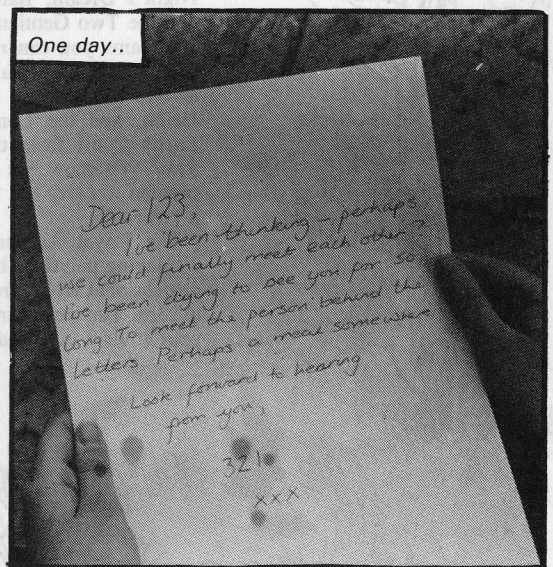 One day..
Dear 123,
I've been thinking – perhaps
we could finally meet each other?
I've been dying to see you for so
long To meet the person behind the
letters Perhaps a meal somewhere
Look forward to hearing
from you,
321
xxx